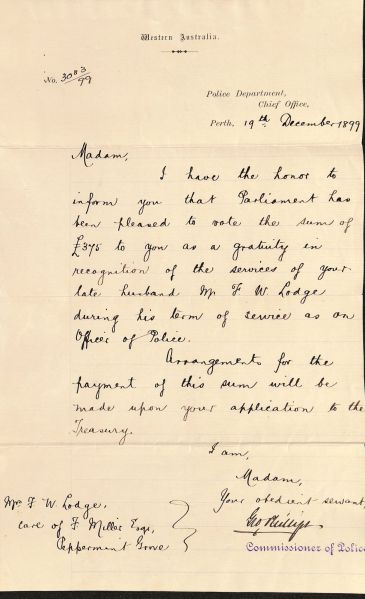 Western Australia.
No. 3083/99
Police Department,
Chief Office,
Perth, 19th December 1899
Madam,
I have the honor to
inform you that Parliament has
been pleased to vote the sum of
£375 to you as a gratuity in
recognition of the services of your
late husband Mr F. W. Lodge
during his term of service as an
Officer of Police.
Arrangements for the
payment of this sum will be
made upon your application to the
Treasury.
I am,
Madam,
Your obedient servant,
Geo Phillips
Commissioner of Police
Mrs F. W. Lodge,
care of F. Miller Esqr,
Peppermint Grove